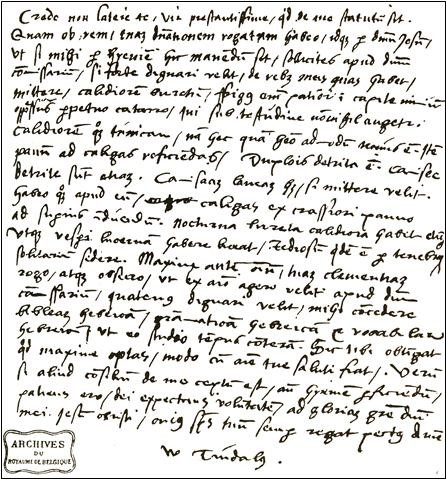 Credo non latere te, vir prestantissime, qd de me statutū sit.
Quam ob rem, tuam dnationem rogatam habeo, idq; per dnm Jesum,
ut si mihi per hyemem hic manendū sit, solicites apud dnm
comissariū, si forte dignari velit, de rebus meis quas habet,
mittere, calidiorem birethū, frigus em patior i capite nimiū
oppressus perpetuo catarro, qui sub testudine nonnihil augetur.
calidiorem quoq; tunicam, nam hec quam habeo admodū tenuis ē. Item
pannū ad caligas reficiendas, Duplois detrita ē. Camisee
detrite sūt etiam. Camiseam laneam habet, si mittere velit.
habeo quoq; apud eū, caligas ex crassiori panno
ad superius induendū. nocturna birreta calidiora habet etiā
Utq; vesperi lucernam habere liceat, tediosum quidē ē per tenebras
solitarium sedere. Maxime autē oīm, tuam clementiam
rogo, atq; obsecro, ut ex aīo agere velit apud dnm
comissariū, quatenus dignari velit, mihi cōcedere
bibleam hebreicā, grāmaticā hebreicā et vocabularium
hebreicū, ut eo studio tēpus cōterā. Sic tibi obtingat
qd maxime optas, modo cū aīe tue saluti fiat, Verū
si aliud cōsiliū de me ceptum est, ante hyemē perficiendū,
patiens ero, dei expectans voluntatē, ad gloriam gratie dni
mei Jesu christi, cuius spūs tuū semper regat pectus Amē
W Tindalus.
ARCHIVES
DU
ROYAUME DE BELGIQUE